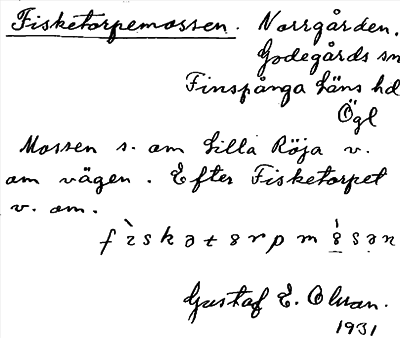 Fisketorpemossen. Norrgården.
Godegårds sn
Finspånga läns hd
Ögl
Mossen s. om Lilla Röja v.
om vägen. Efter Fisketorpet
v. om.
Gustaf E. Olsson.
1931